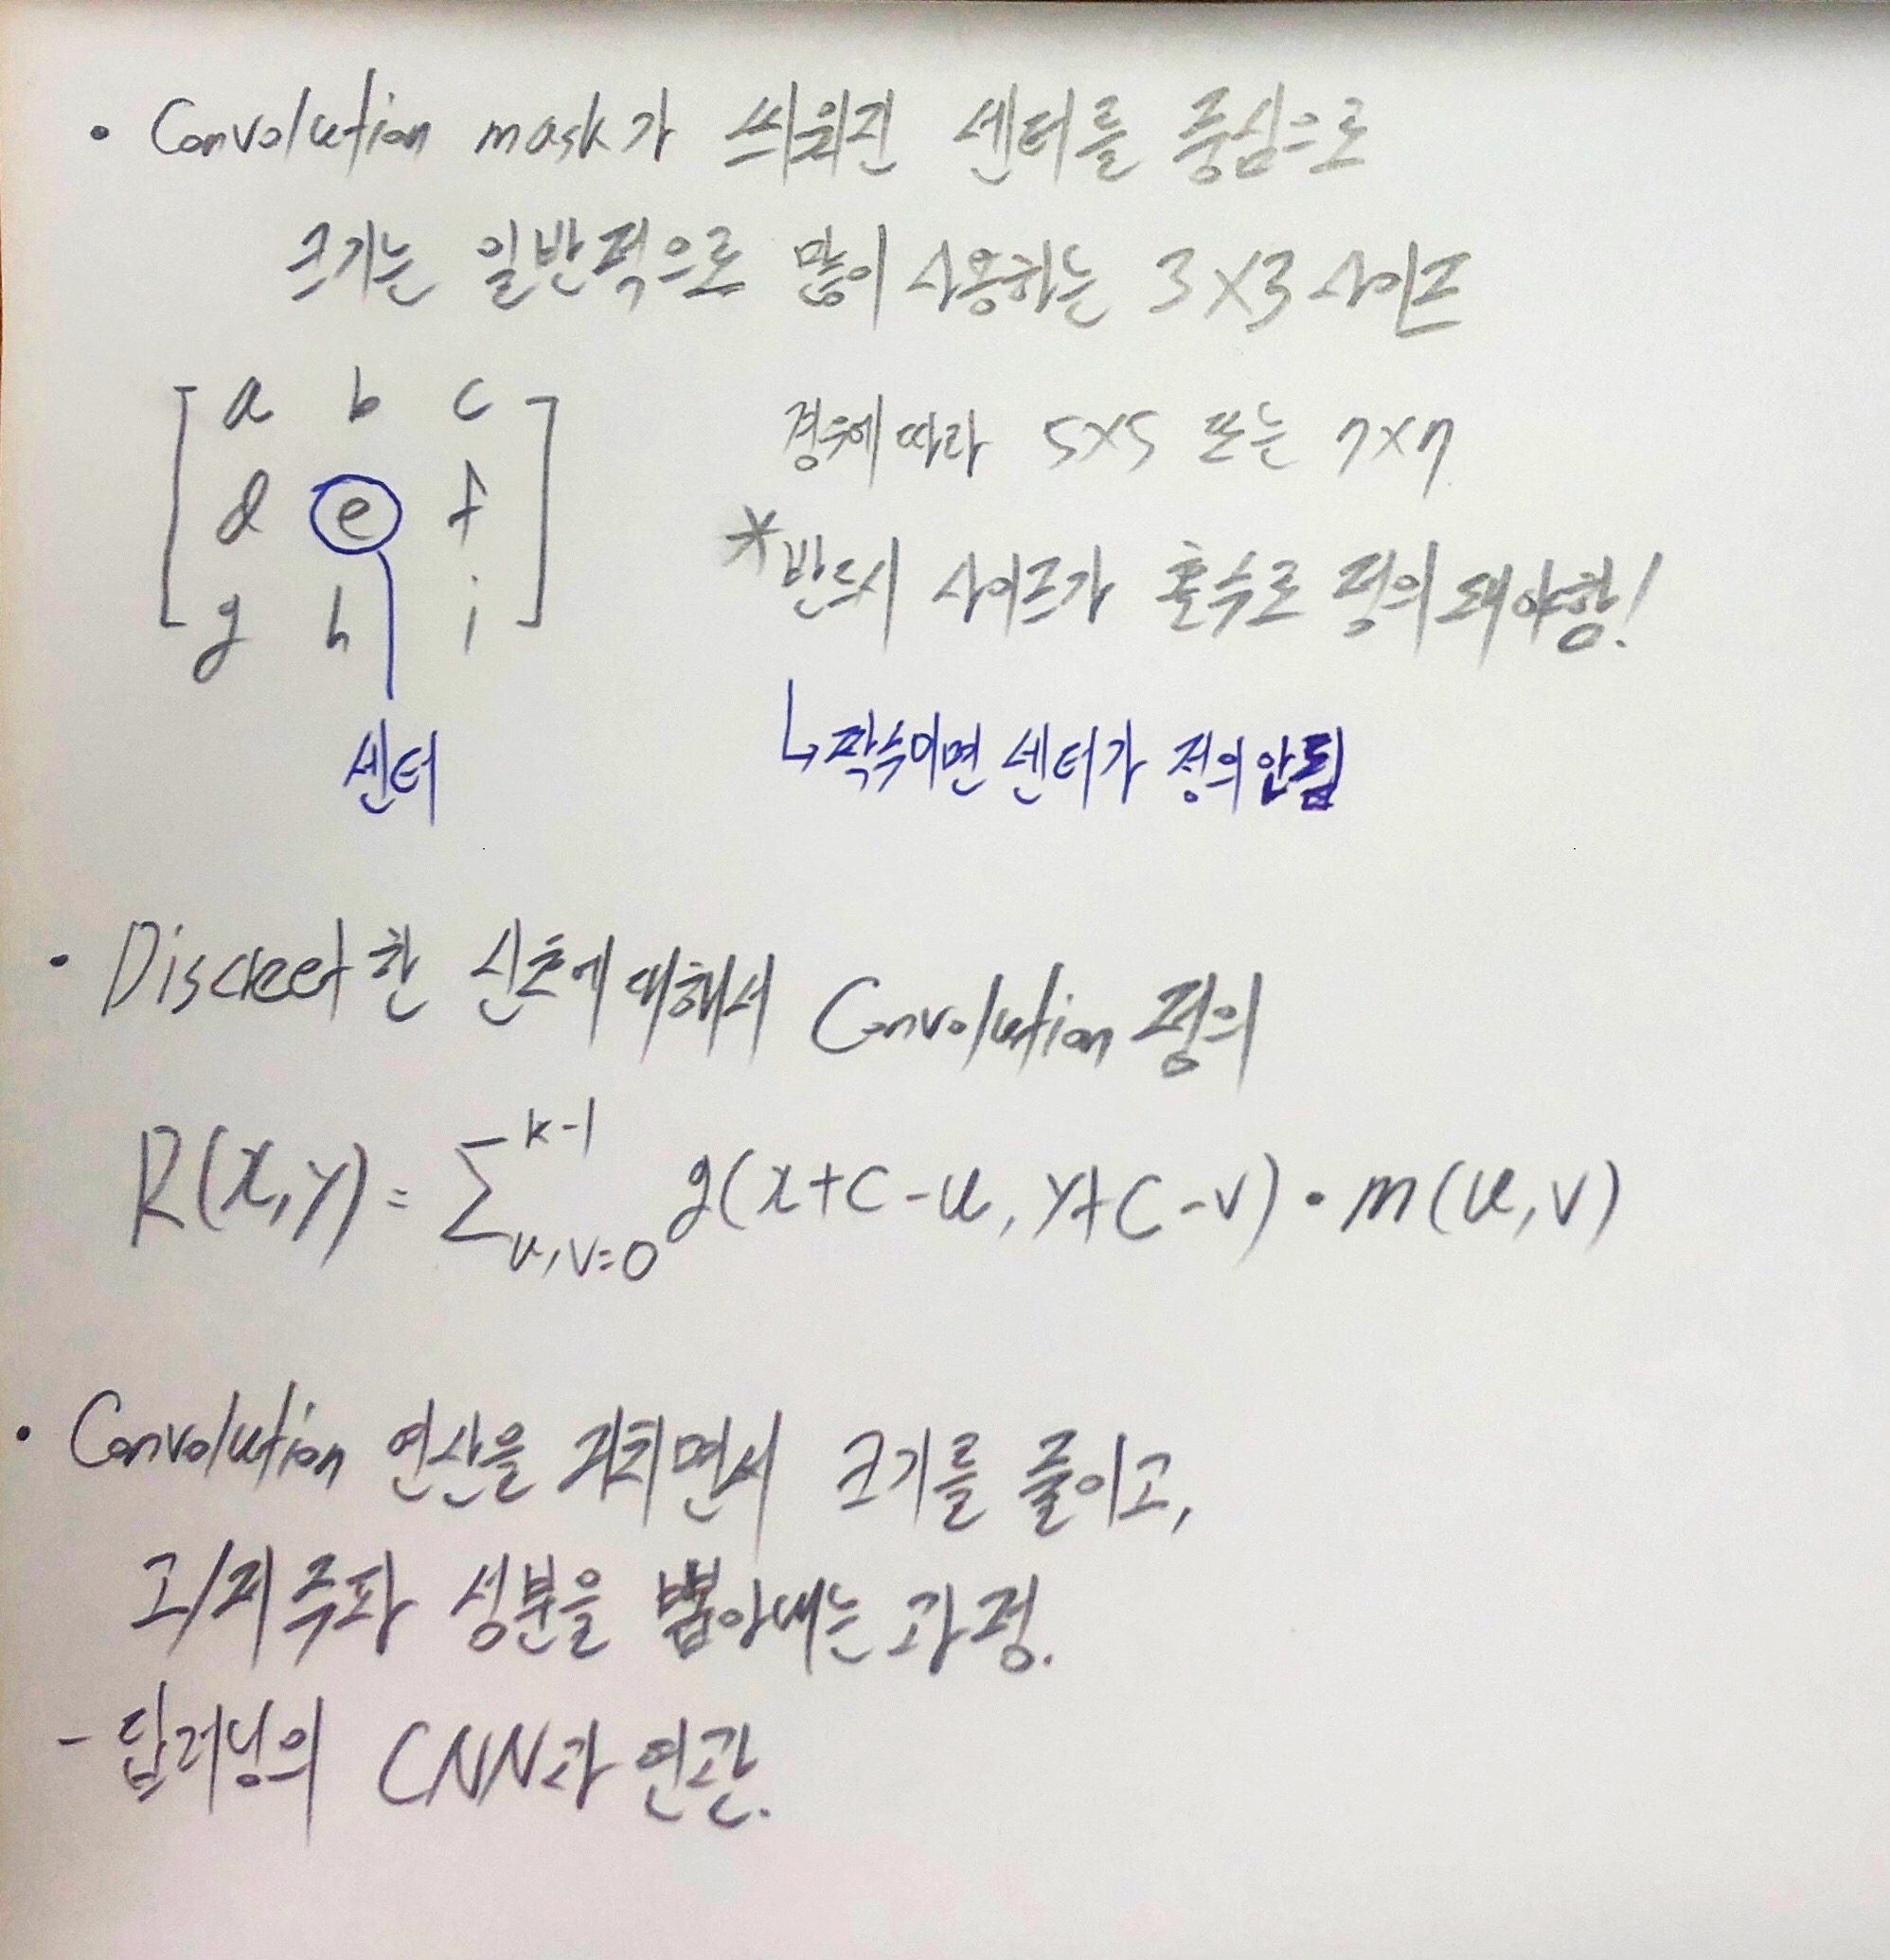 • Convolution mask가 씌워진 센터를 중심으로
크기는 일반적으로 많이 사용하는 3×3 사이즈
a b c
d e f
g h i
센터
경우에 따라 5×5 또는 7×7
*반드시 사이즈가 홀수로 정의 돼야함!
↳ 짝수이면 센터가 정의 안됨
• Discreet한 신호에 대해서 Convolution 정의
R(x,y) = ∑ᵏ⁻¹ᵤ,ᵥ₌₀ g(x+c-u, y+c-v)•m(u,v)
• Convolution 연산을 거치면서 크기를 줄이고,
고/저주파 성분을 뽑아내는 과정.
- 딥러닝의 CNN과 연관.